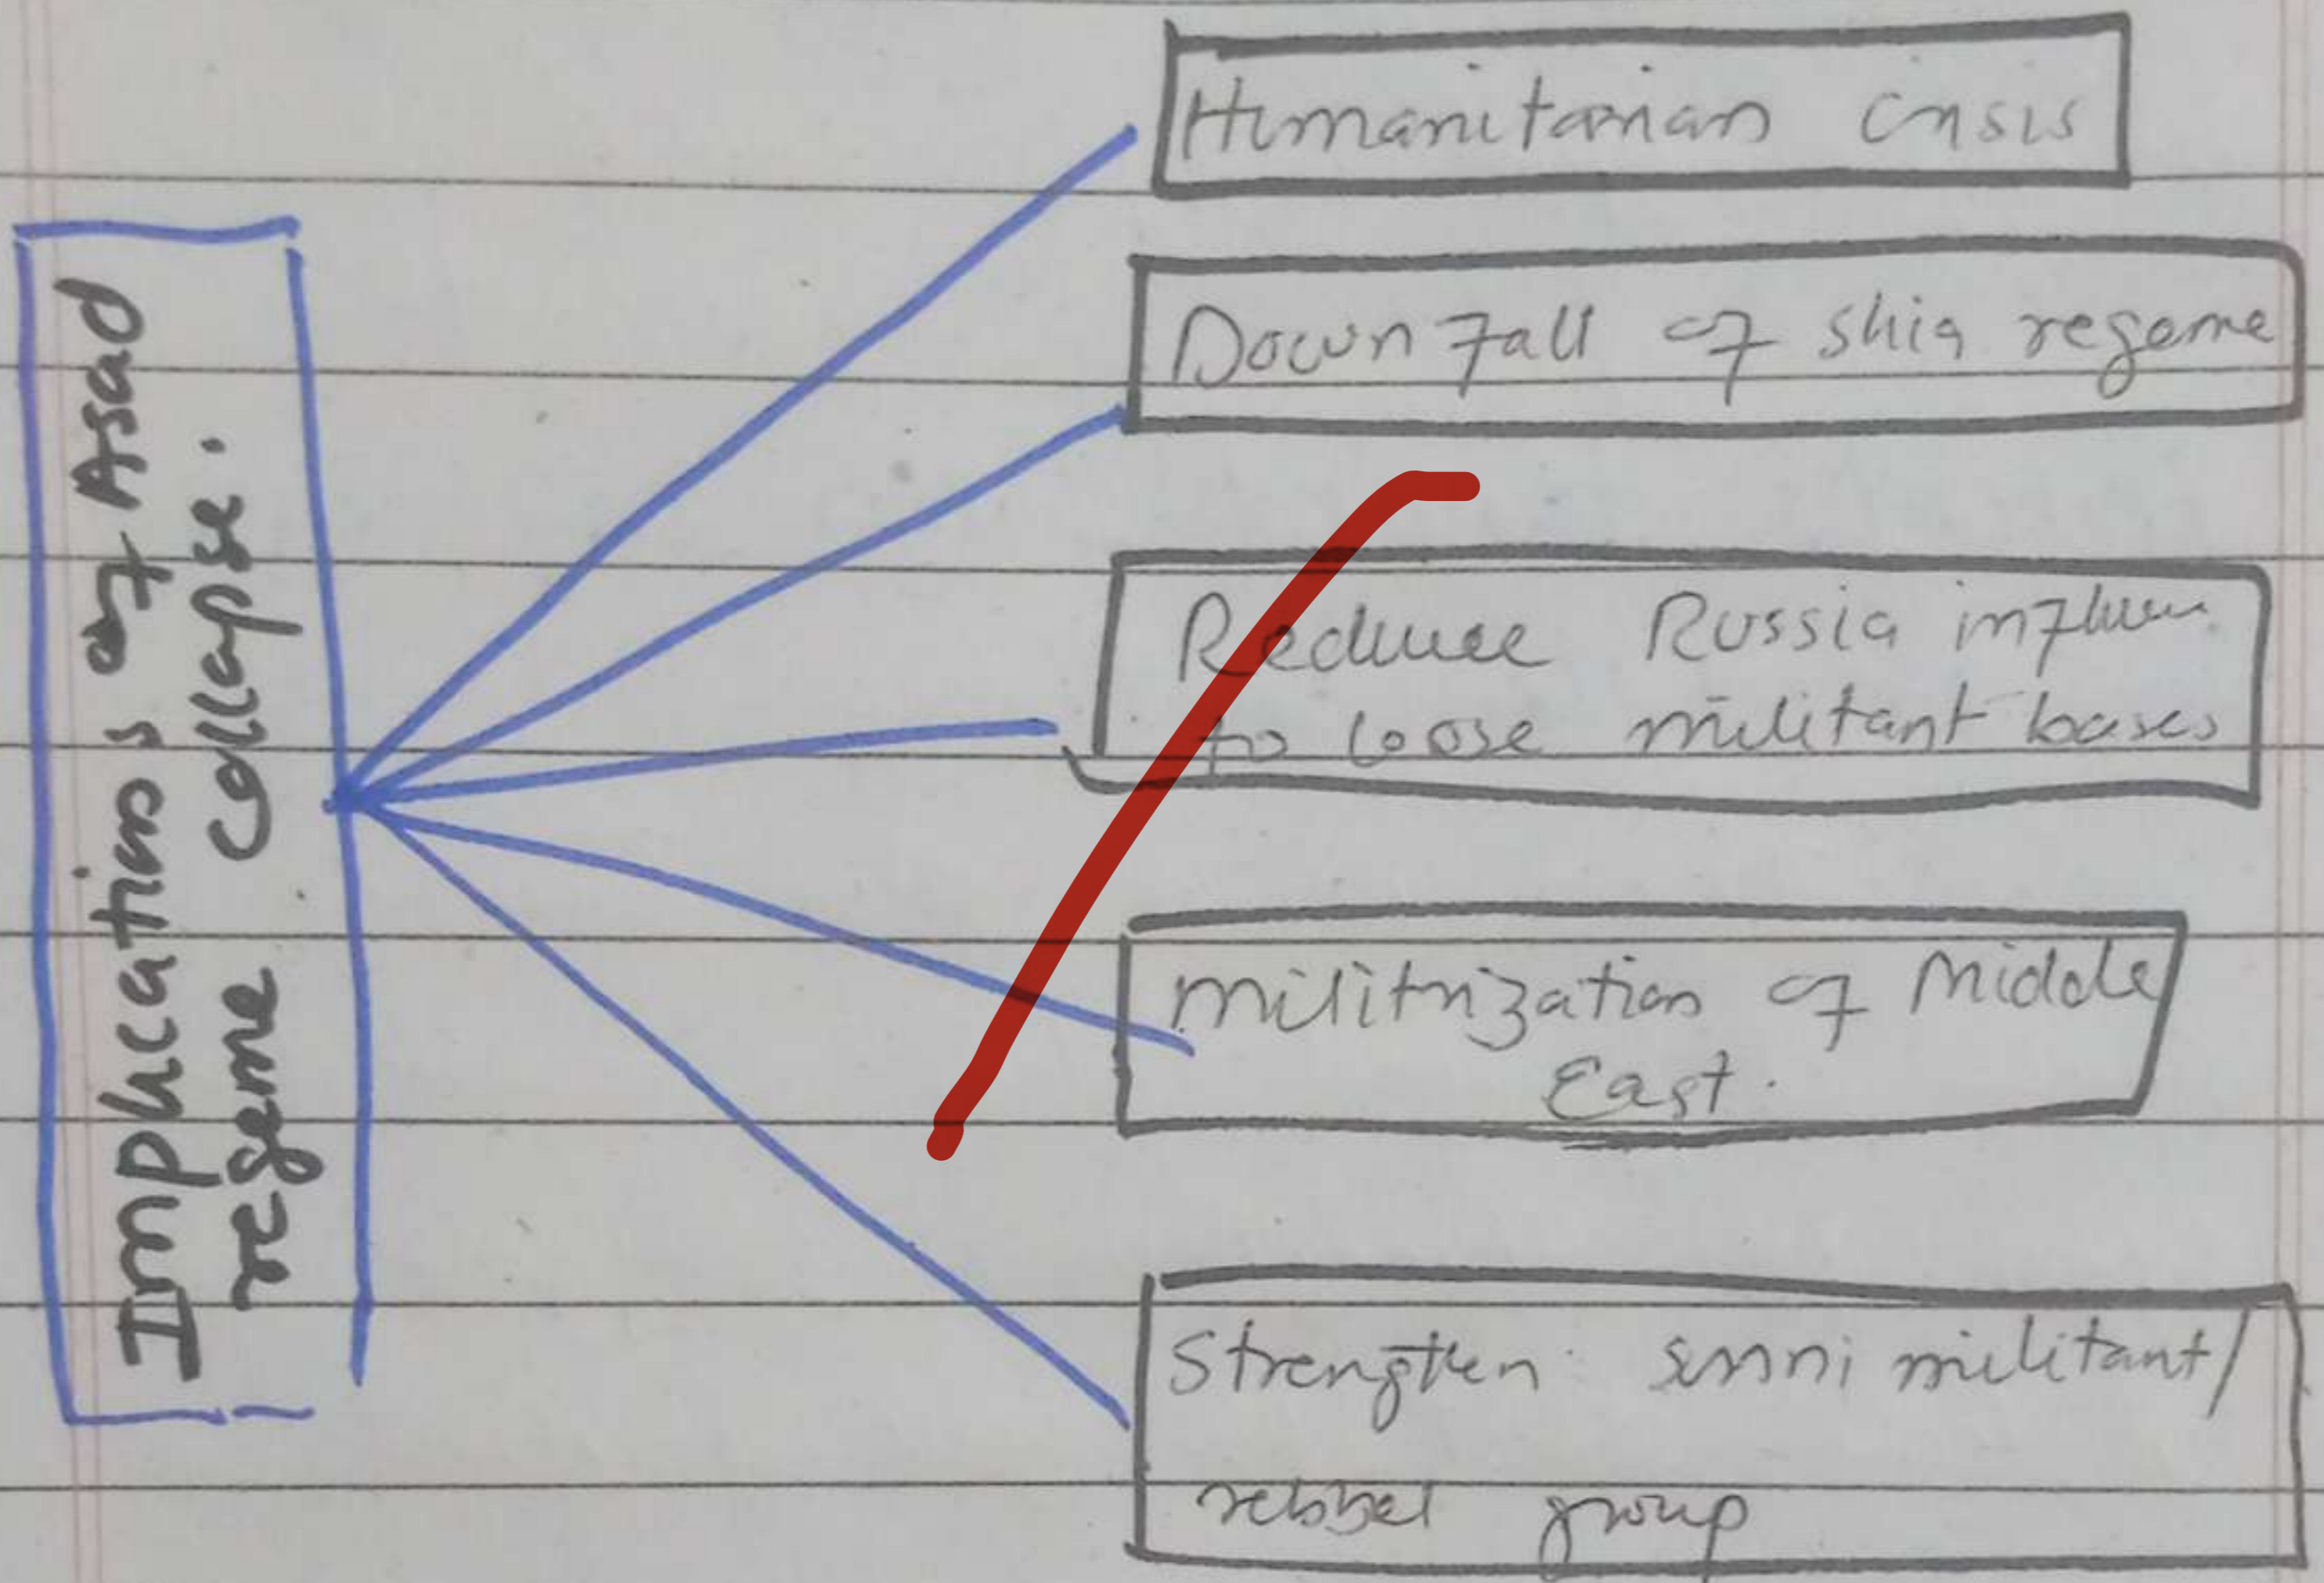 Implications of Asad
regeme collapse.
Humanitarian crisis
Down fall of shia regeme
Reduce Russia influen
to loose militant bases
militrization of Middle
East.
Strengthen sunni militant/
rebbel group